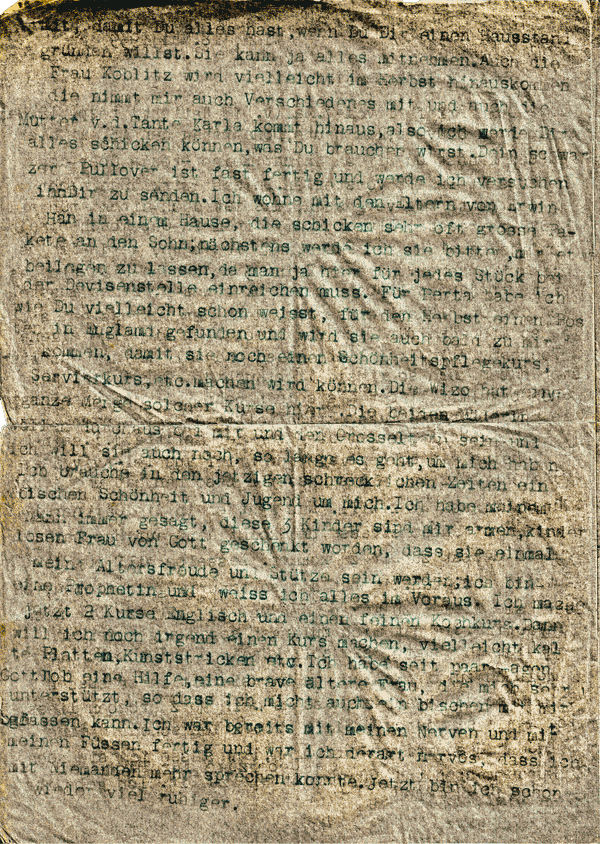 mit, damit Du alles hast, wenn Du Dir einen Hausstand
gründen willst. Sie kann ja alles mitnehmen. Auch die
Frau Koblitz wird vielleicht im Herbst hinauskommen
die nimmt mir auch Verschiedenes mit und auch die
Mutter v.d. Tante Karla kommt hinaus, also ich werde Dir
alles schicken können, was Du brauchen wirst. Dein schwar
zer Pullover ist fast fertig und werde ich versuchen
ihnDir zu senden. Ich wohne mit den Eltern von Erwin
Hahn in einem Hause, die schicken sehr oft grosse Pa-
kete an den Sohn; nächstens werde ich sie bitten,
beilegen zu lassen, da man ja hier für jedes Stück bei
der Devisenstelle einreichen muss. Für Berta habe ich
wie Du vielleicht schon weisst, für den Herbst einen Pos
ten in England gefunden und wird sie auch bald zu mir
kommen, damit sie noch einen Schönheitspflegekurs,
Servierkurs, etc. machen wird können. Die Wizo hat eine
ganze Menge solcher Kurse hier. Die beiden
mit und der
ich will sie auch noch, so lange es geht, um mich haben
Ich brauche in den jetzigen schrecklichen Zeiten ein
bischen Schönheit und Jugend um mich. Ich habe meinem
Mann immer gesagt, diese 3 Kinder sind mir armen, kinder
losen Frau von Gott geschenkt worden, dass sie einmal
meine Altersfreude und Stütze sein werden; ich bin
eine Prophetin und weiss ich alles im Voraus. Ich mache
jetzt 2 Kurse Englisch und einen feinen Kochkurs. Dann
will ich noch irgend einen Kurs machen, vielleicht kal
te Platten, Kunststricken etc. Ich habe seit paar Tagen
Gottlob eine Hilfe, eine brave ältere Frau, die mich sehr
unterstützt, so dass ich mich auch ein bischen mit mir
befassen kann. Ich war bereits mit meinen Nerven und mit
meinen Füssen fertig und war ich derart nervös, dass ich
mit Niemandem mehr sprechen konnte. Jetzt bin ich schon
wieder viel ruhiger.